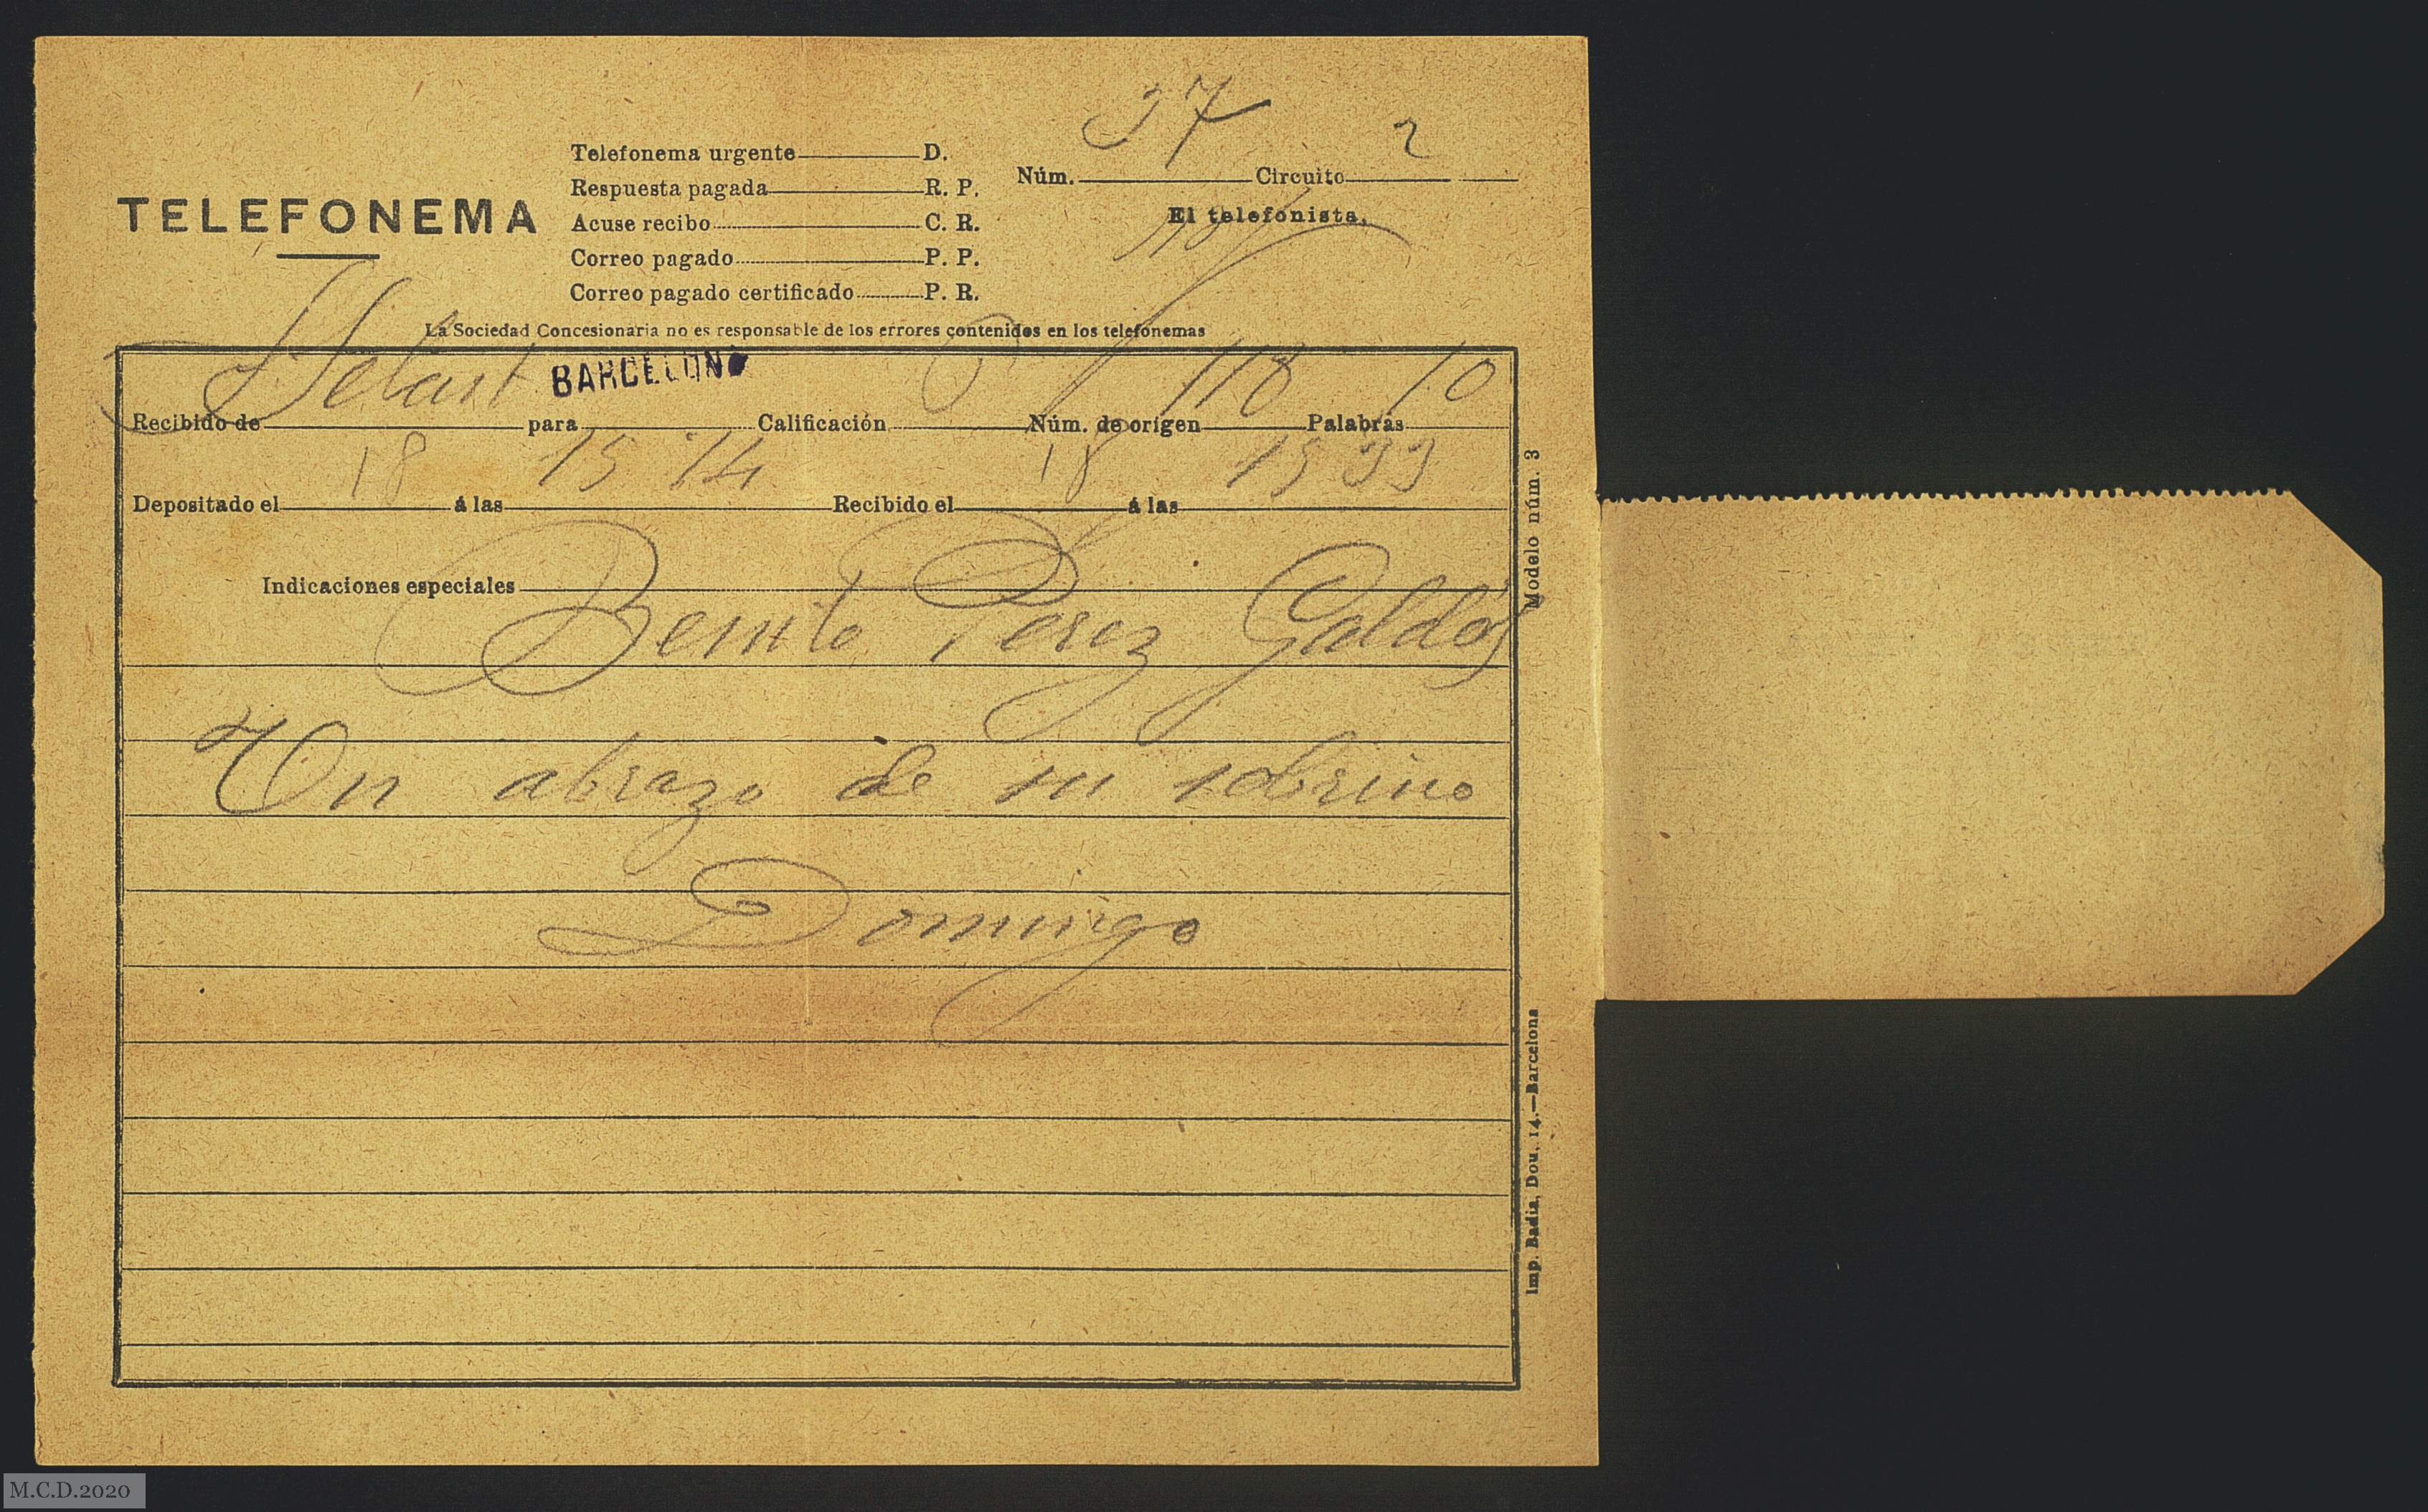 37 2
Telefonema urgente D.
Respuesta pagada R. P.
Núm. Circuito
TELEFONEMA
Acuse recibo C. R.
El telefonista,
Correo pagado P. P.
Correo pagado certificado P. R.
La Sociedad Concesionaria no es responsable de los errores contenidos en los telefonemas
BARCELONA 118 10
Recibido de para Calificación Núm. de origen Palabras
18 15 14 18 15 33
Depositado el á las Recibido el á las
Indicaciones especiales
Benito Perez Galdós
Un abrazo de su sobrino
Domingo
Modelo núm. 3
Imp. Badia, Dou, 14.—Barcelona
M.C.D.2020